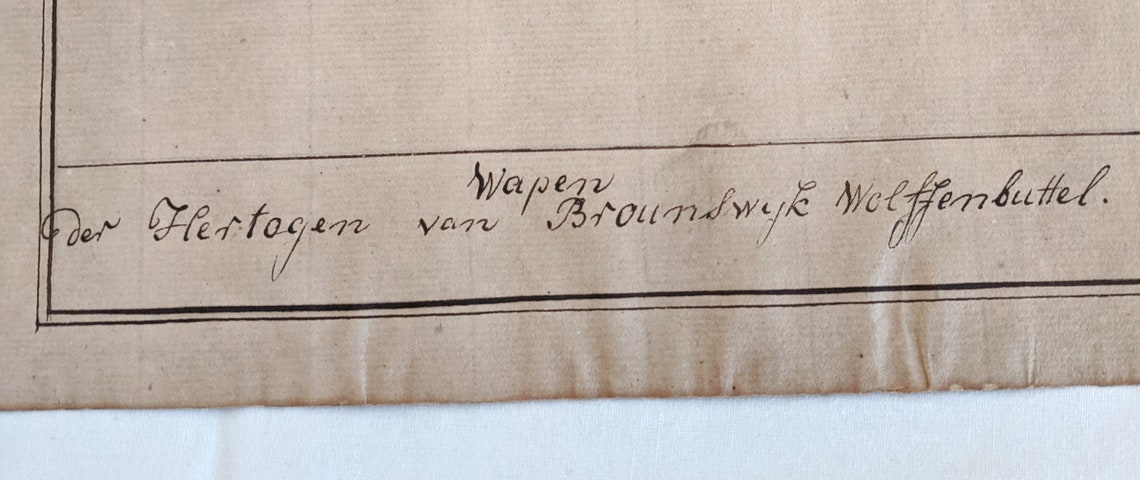 Wapen
der Hertogen van Brounswyk Wolffenbuttel.